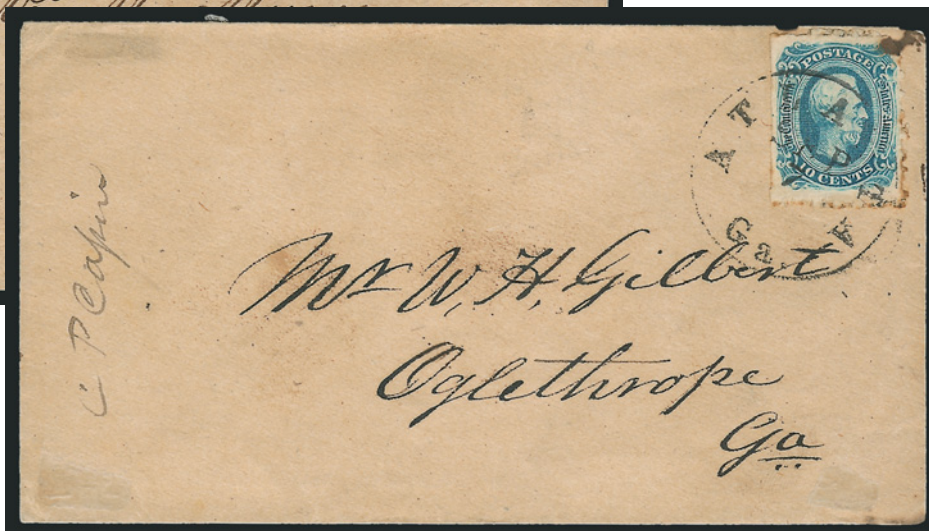 POSTAGE
The Confederate States of America
10 CENTS
AT A
Ga
Mr W. H. Gilbert
Oglethrope
Ga